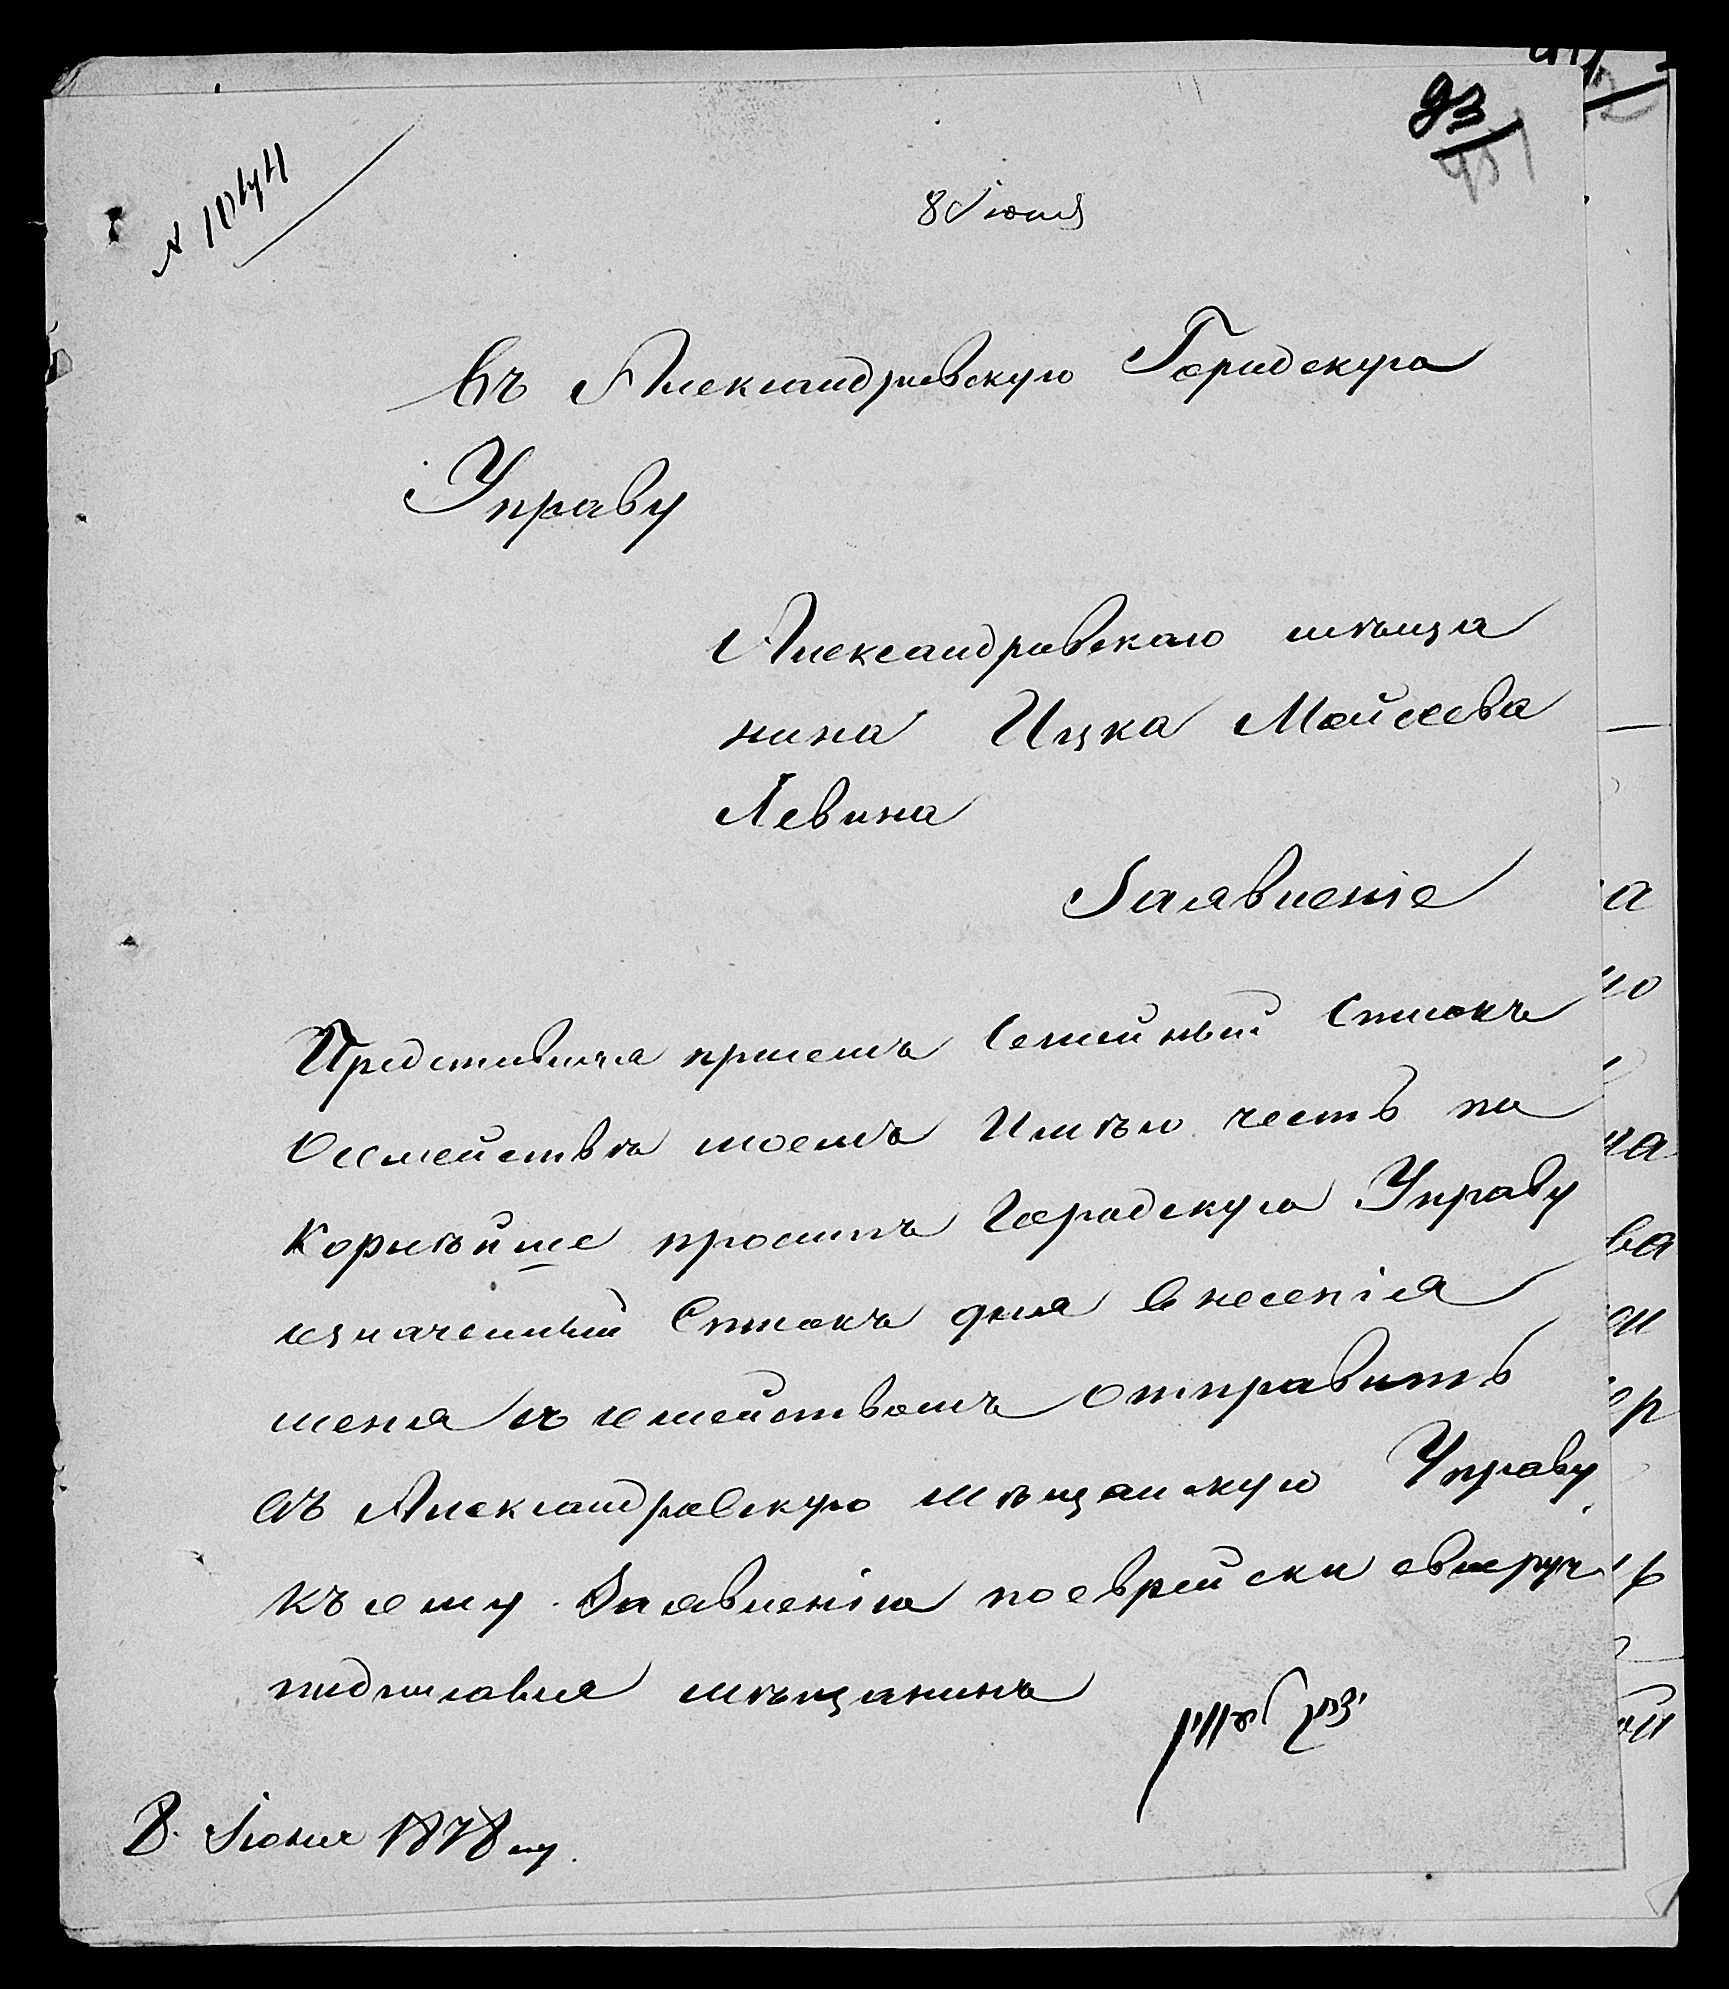 93
№ 1044
8 Июня
Въ Александровскую Городскую
Управу
Александровского мѣща
нина Ицка Мойсеева
Левина
Заявленіе
Представляя присемъ Семейный Списокъ
Осемействѣ моемъ Имѣю честь по
корнѣйше просить Городскую Управу
означенный Списокъ для внесенія
меня съ семействомъ отправить
въ Александровскую мѣщанскую Управу
къ сему Заявленію поеврейски своеруч
подписався мѣщанинъ
יצחק לעווין
8. Іюня 1878 г.